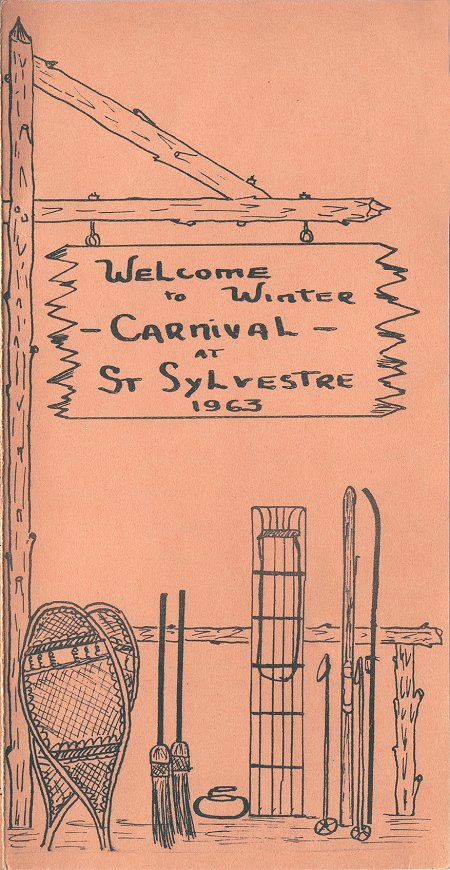 WELCOME
to WINTER
- CARNIVAL -
AT
ST SYLVESTRE
1963